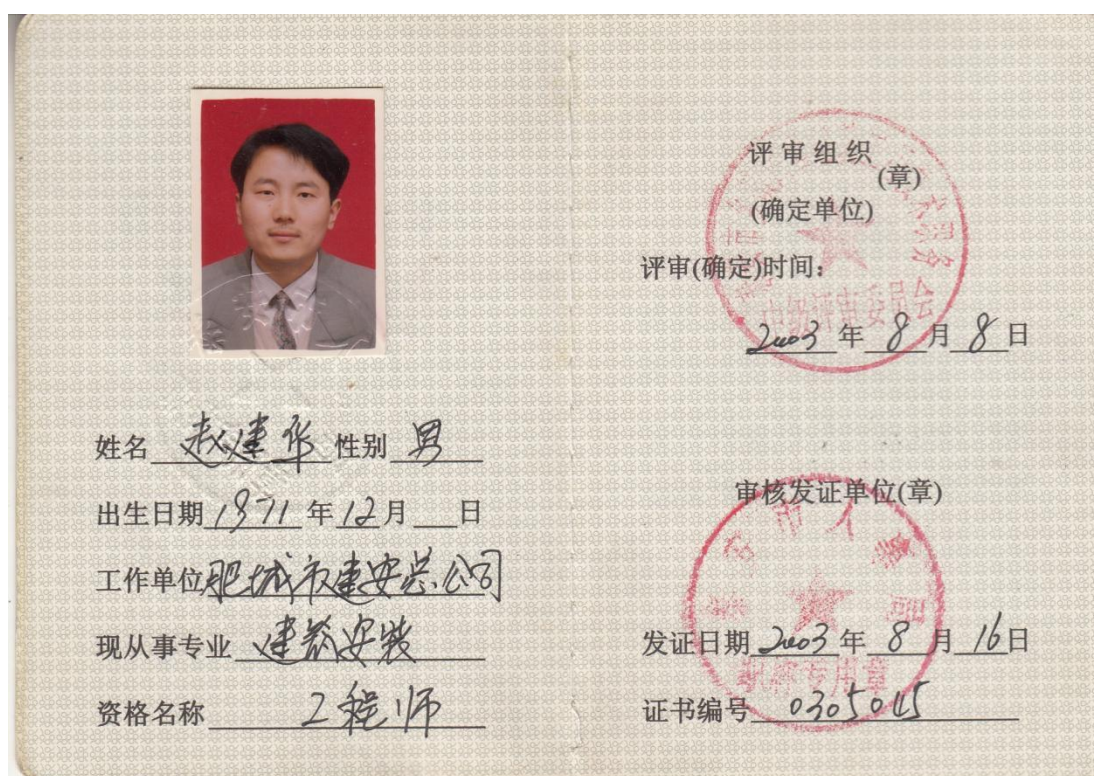 姓名 赵建华 性别 男
出生日期 1971 年 12 月 日
工作单位 肥城市建安总公司
现从事专业 建筑安装
资格名称 工程师
评审组织
(章)
(确定单位)
评审(确定)时间:
2003 年 8 月 8 日
中级评审委员会
审核发证单位(章)
泰安市人事局
发证日期 2003 年 8 月 16 日
职称专用章
证书编号 0305045